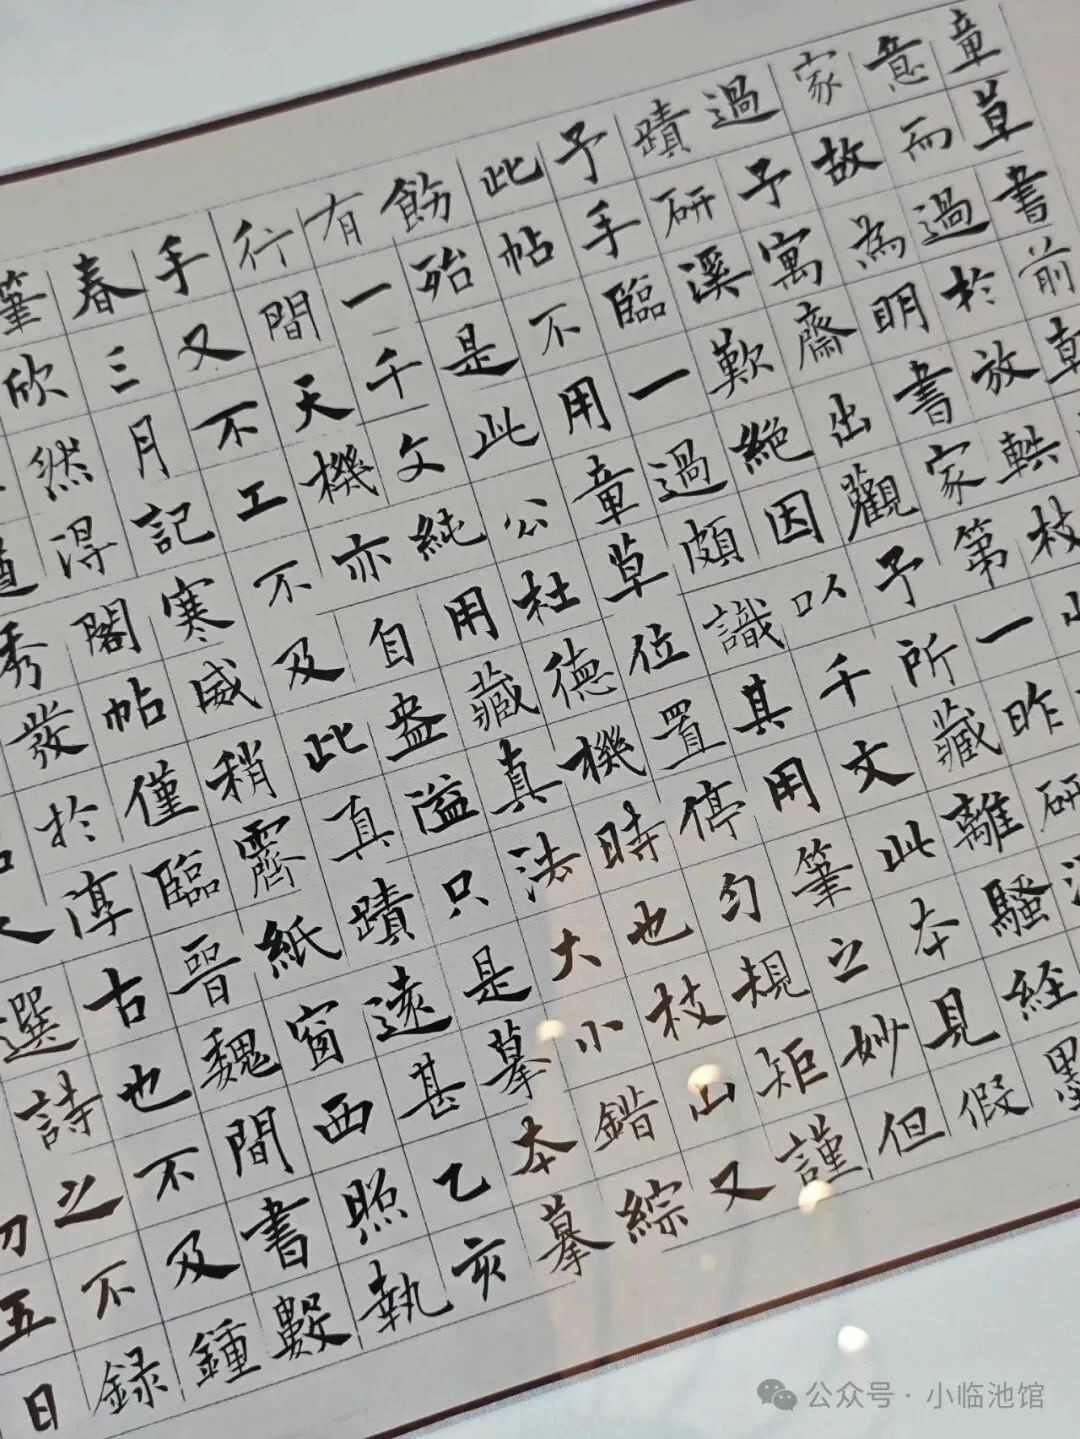 章草書前乾
意而過於放軼枝山
家故為明書家第一昨研
過予寓齋出觀予所藏離騷経墨
蹟研溪歎絕因以千文此本見假
予手臨一過頗識其用筆之妙但
此帖不用章草位置停勻規矩謹
飭殆是此公杜德機時也枝山又
有一千文純用藏真法大小錯綜
行間天機亦自盎溢只是摹本摹
手又不工不及此真蹟遠甚乙亥
春三月記寒威稍霽紙窗西照執
筆欣然得閣帖僅臨晉魏間書數
秀發於淳古也不及鍾
選詩之不録
五日
公众号·小临池馆